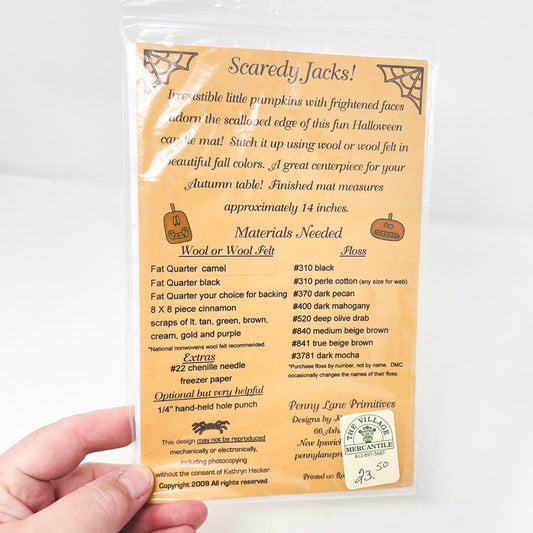 Scaredy Jacks!
Irresistible little pumpkins with frightened faces
adorn the scalloped edge of this fun Halloween
candle mat! Stitch it up using wool or wool felt in
beautiful fall colors. A great centerpiece for your
Autumn table! Finished mat measures
approximately 14 inches.
Materials Needed
Wool or Wool Felt
Fat Quarter camel
Fat Quarter black
Fat Quarter your choice for backing
8 X 8 piece cinnamon
scraps of lt. tan, green, brown,
cream, gold and purple
*National nonwovens wool felt recommended.
Extras
#22 chenille needle
freezer paper
Optional but very helpful
1/4" hand-held hole punch
This design may not be reproduced
mechanically or electronically,
including photocopying
without the consent of Kathryn Hecker.
Copyright 2009 All rights reserved
Floss
#310 black
#310 perle cotton (any size for web)
#370 dark pecan
#400 dark mahogany
#520 deep olive drab
#840 medium beige brown
#841 true beige brown
#3781 dark mocha
*Purchase floss by number, not by name. DMC
occasionally changes the names of their floss.
Penny Lane Primitives
Designs by
66
New Ipswich
Printed on
THE VILLAGE
MERCANTILE
612-897-3687
23.50